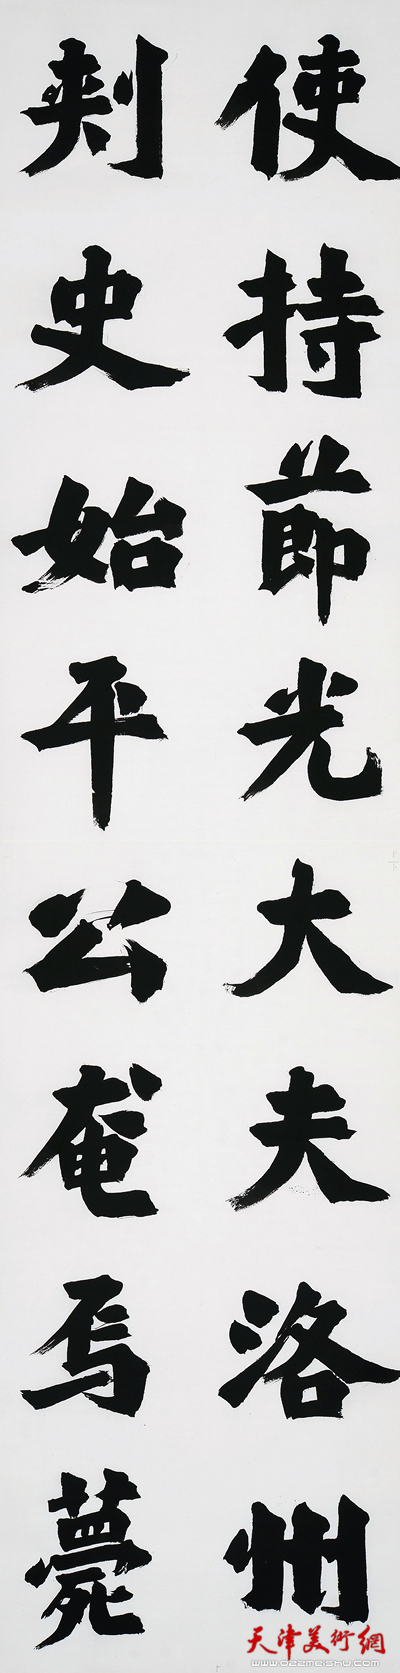 使持節光大夫洛州
刾史始平公奄焉薨
天津美術網
www.022meishu.com